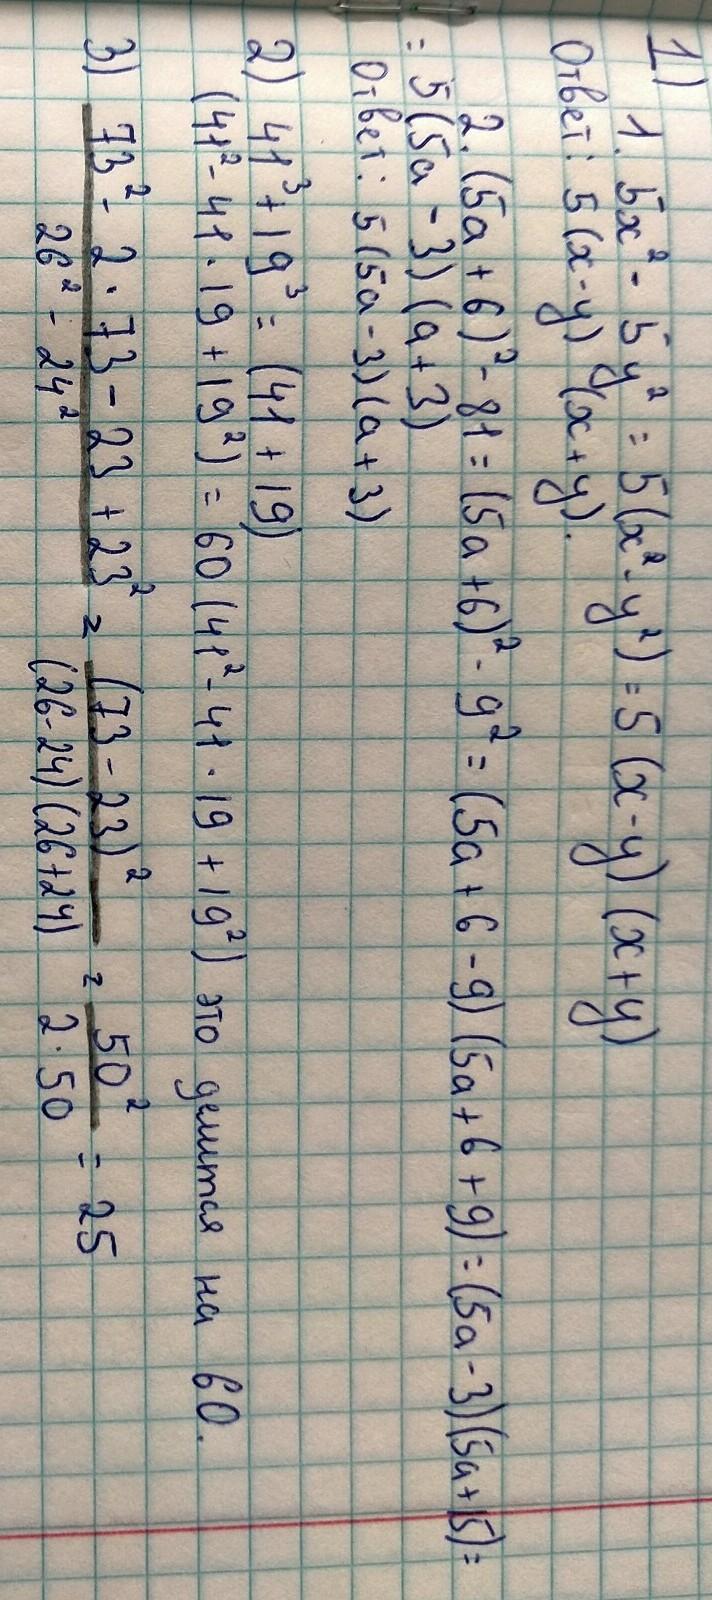 1) 1. 5x² - 5y² = 5(x² - y²) = 5(x-y)(x+y)
Ответ: 5(x-y)(x+y).
2. (5a + 6)² - 81 = (5a+6)² - 9² = (5a + 6 - 9)(5a + 6 + 9) = (5a-3)(5a+15) =
= 5(5a - 3)(a+3)
Ответ: 5(5a-3)(a+3)
2) 41³ + 19³ = (41 + 19)
(41² - 41 · 19 + 19²) = 60(41² - 41 · 19 + 19²) это делится на 60.
3) 73² - 2 · 73 - 23 + 23² = (73 - 23)² = 50² = 25
26² - 24² (26-24)(26+24) 2 · 50